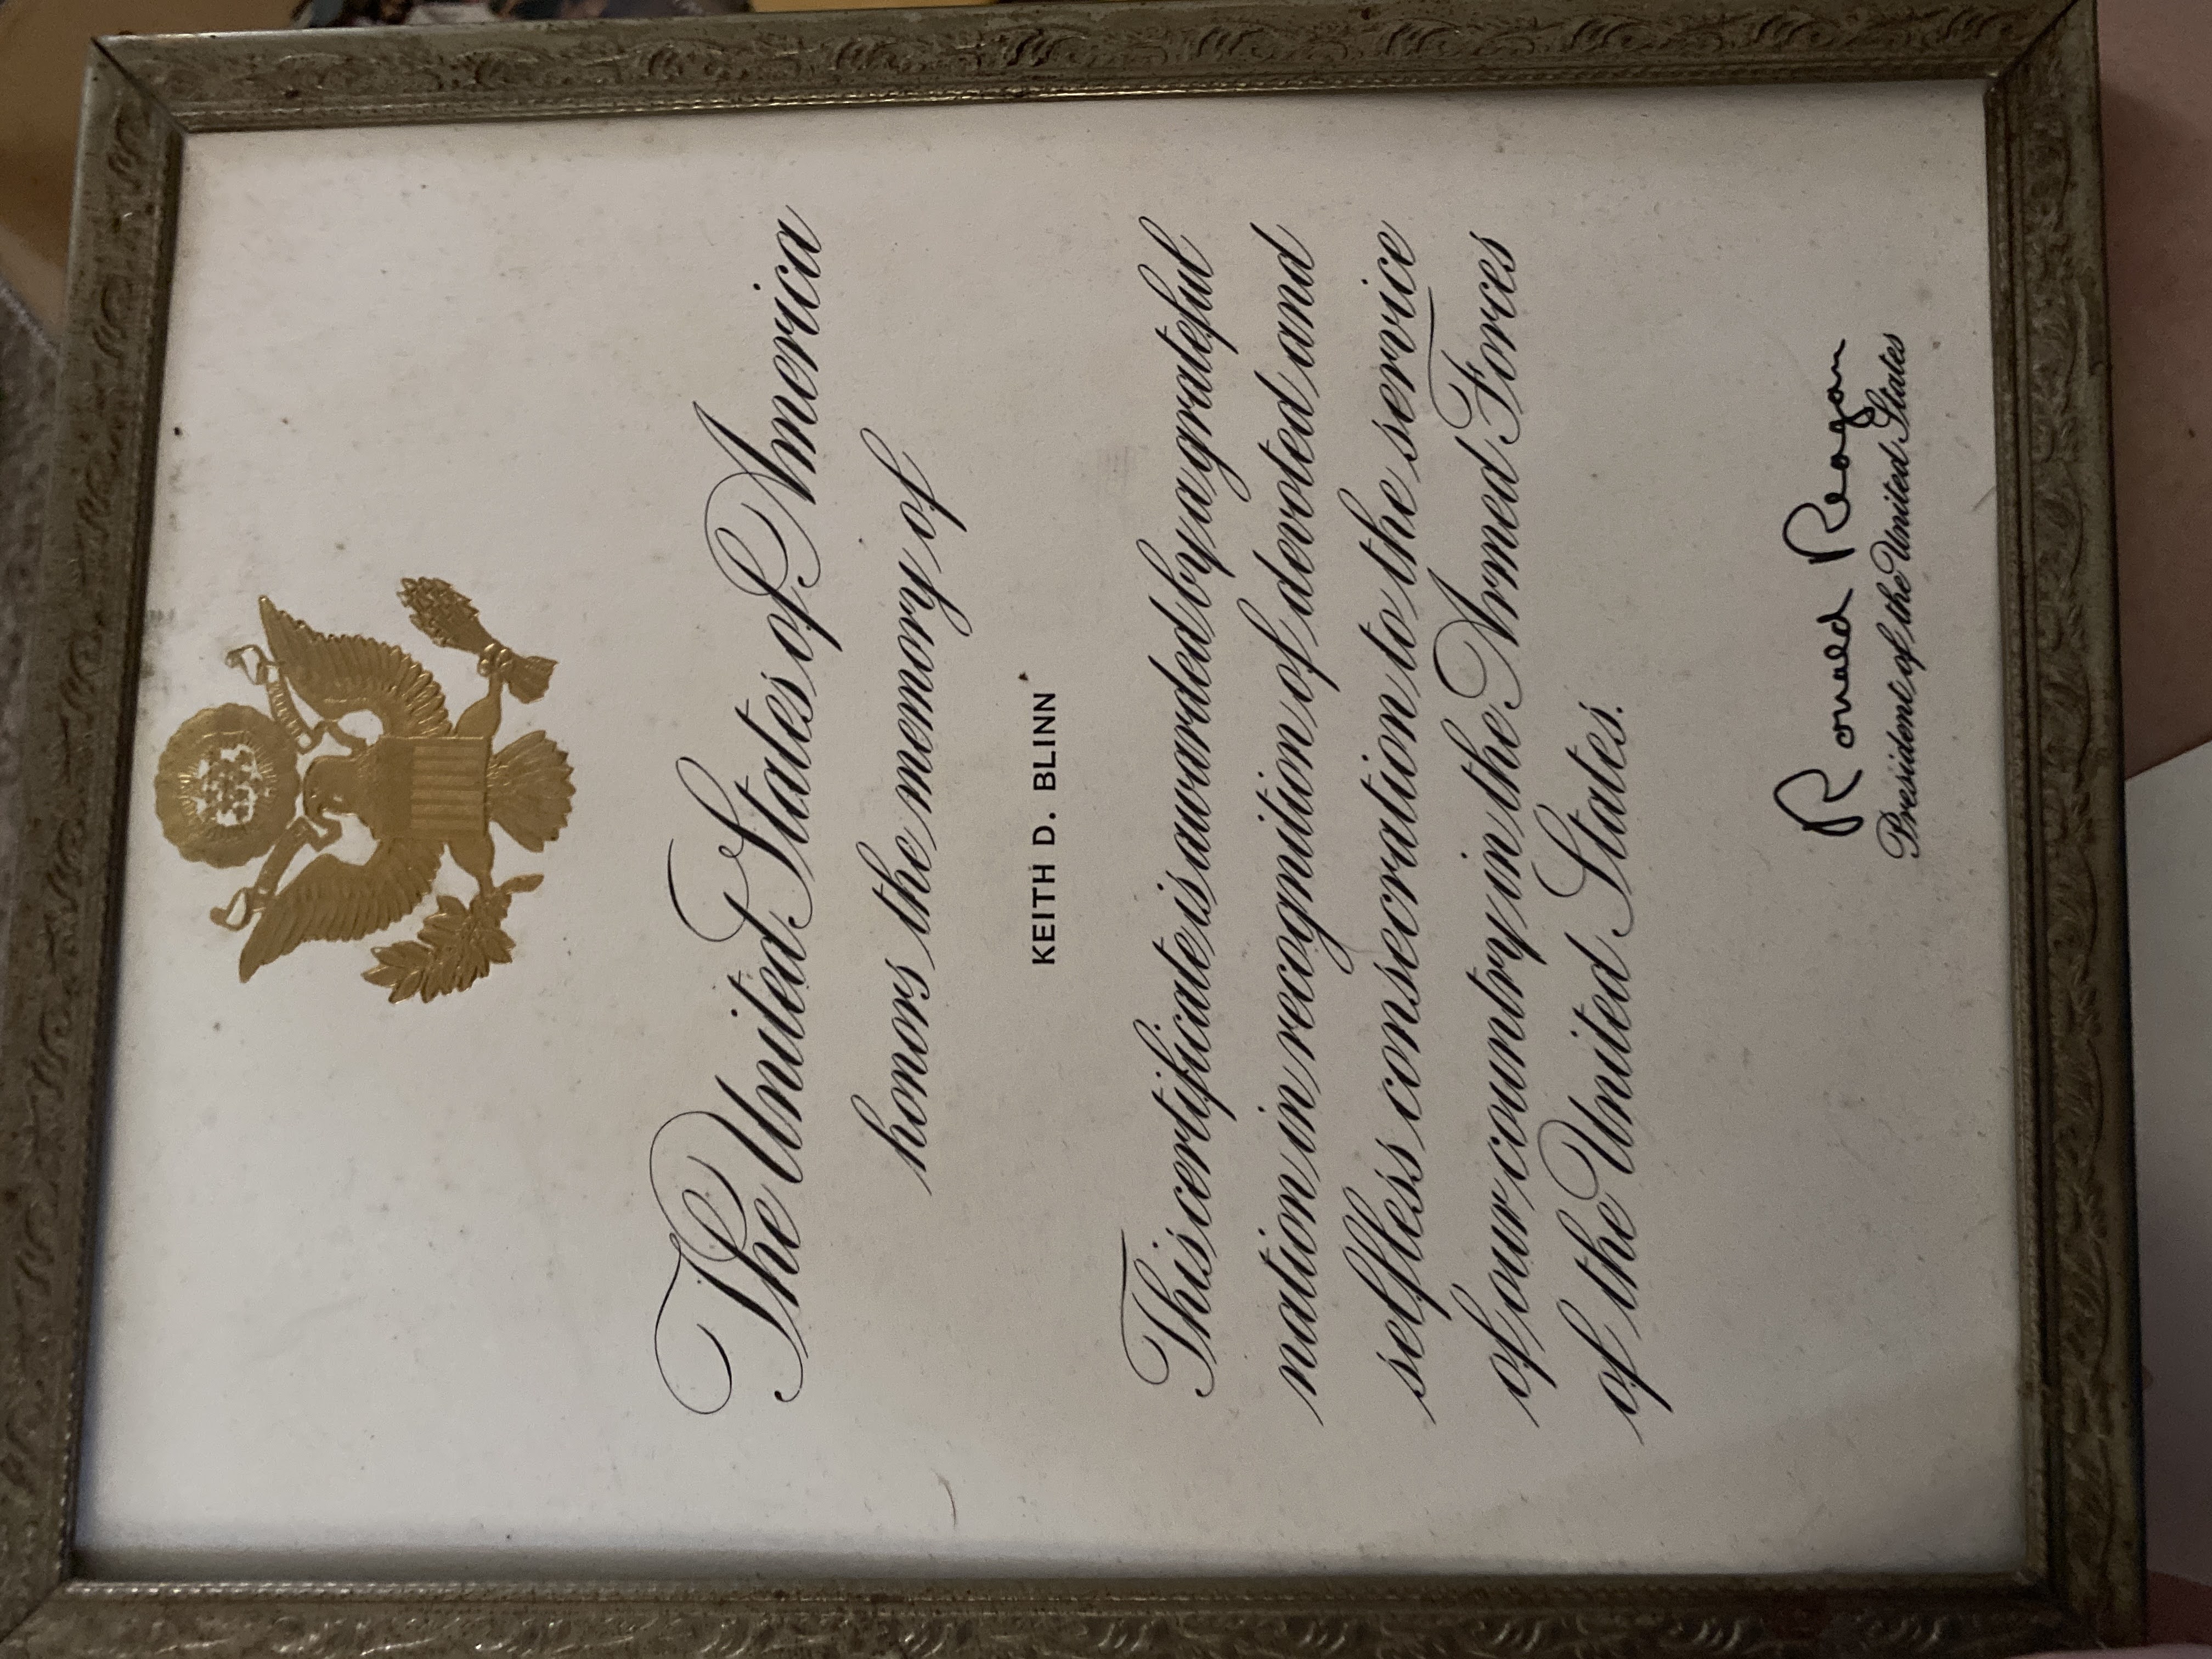 The United States of America
honors the memory of
KEITH D. BLINN
This certificate is awarded by a grateful
nation in recognition of devoted and
selfless consecration to the service
of our country in the Armed Forces
of the United States.
Ronald Reagan
President of the United States